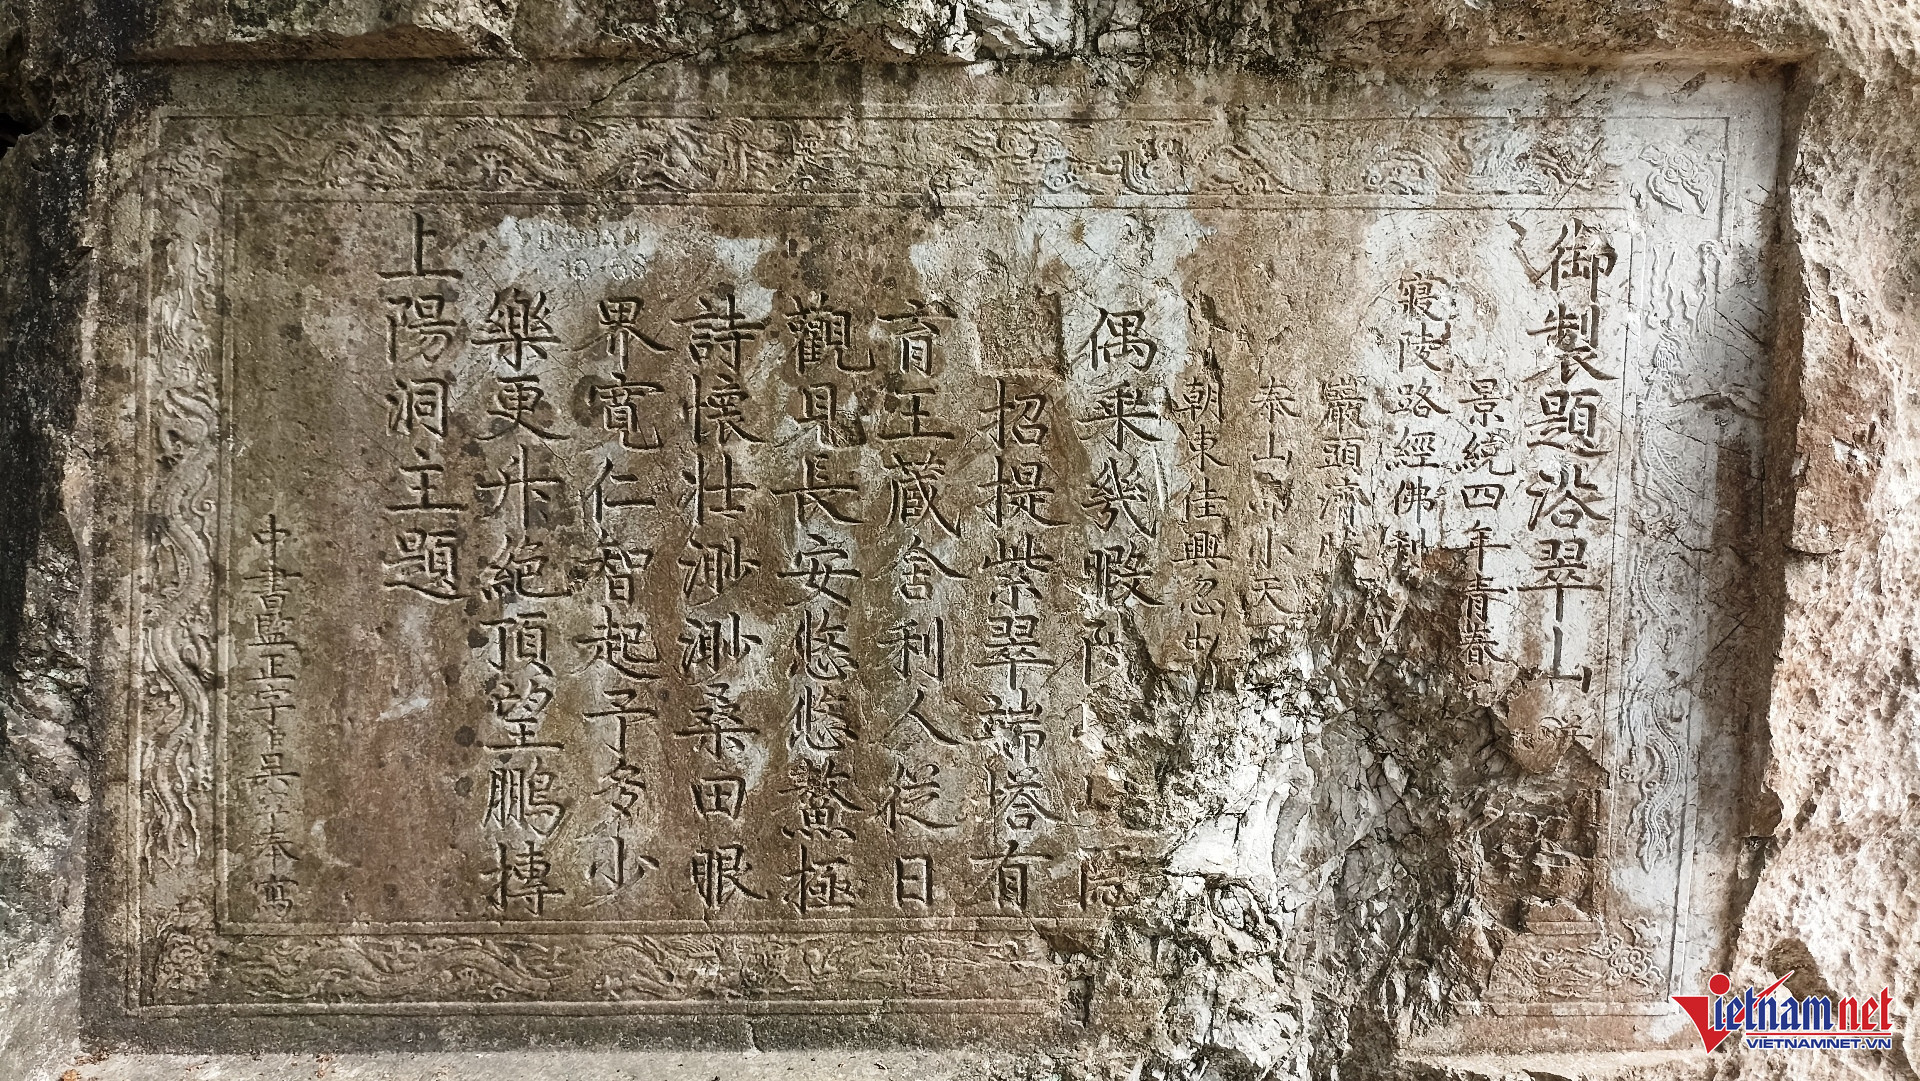 御製題浴翠山
景統四年青春
寢陵路經佛
巖頭濟
泰山而小天
朝東佳興忽
偶乘幾暇
招提紫翠端塔有
育王藏舍利人從日
觀見長安悠悠鰲極
詩懷壯渺渺桑田眼
界寬仁智起予多少
樂更升絕頂望鵬搏
上陽洞主題
中書監正字臣吳本寫
Vietnamnet
VIETNAMNET.VN